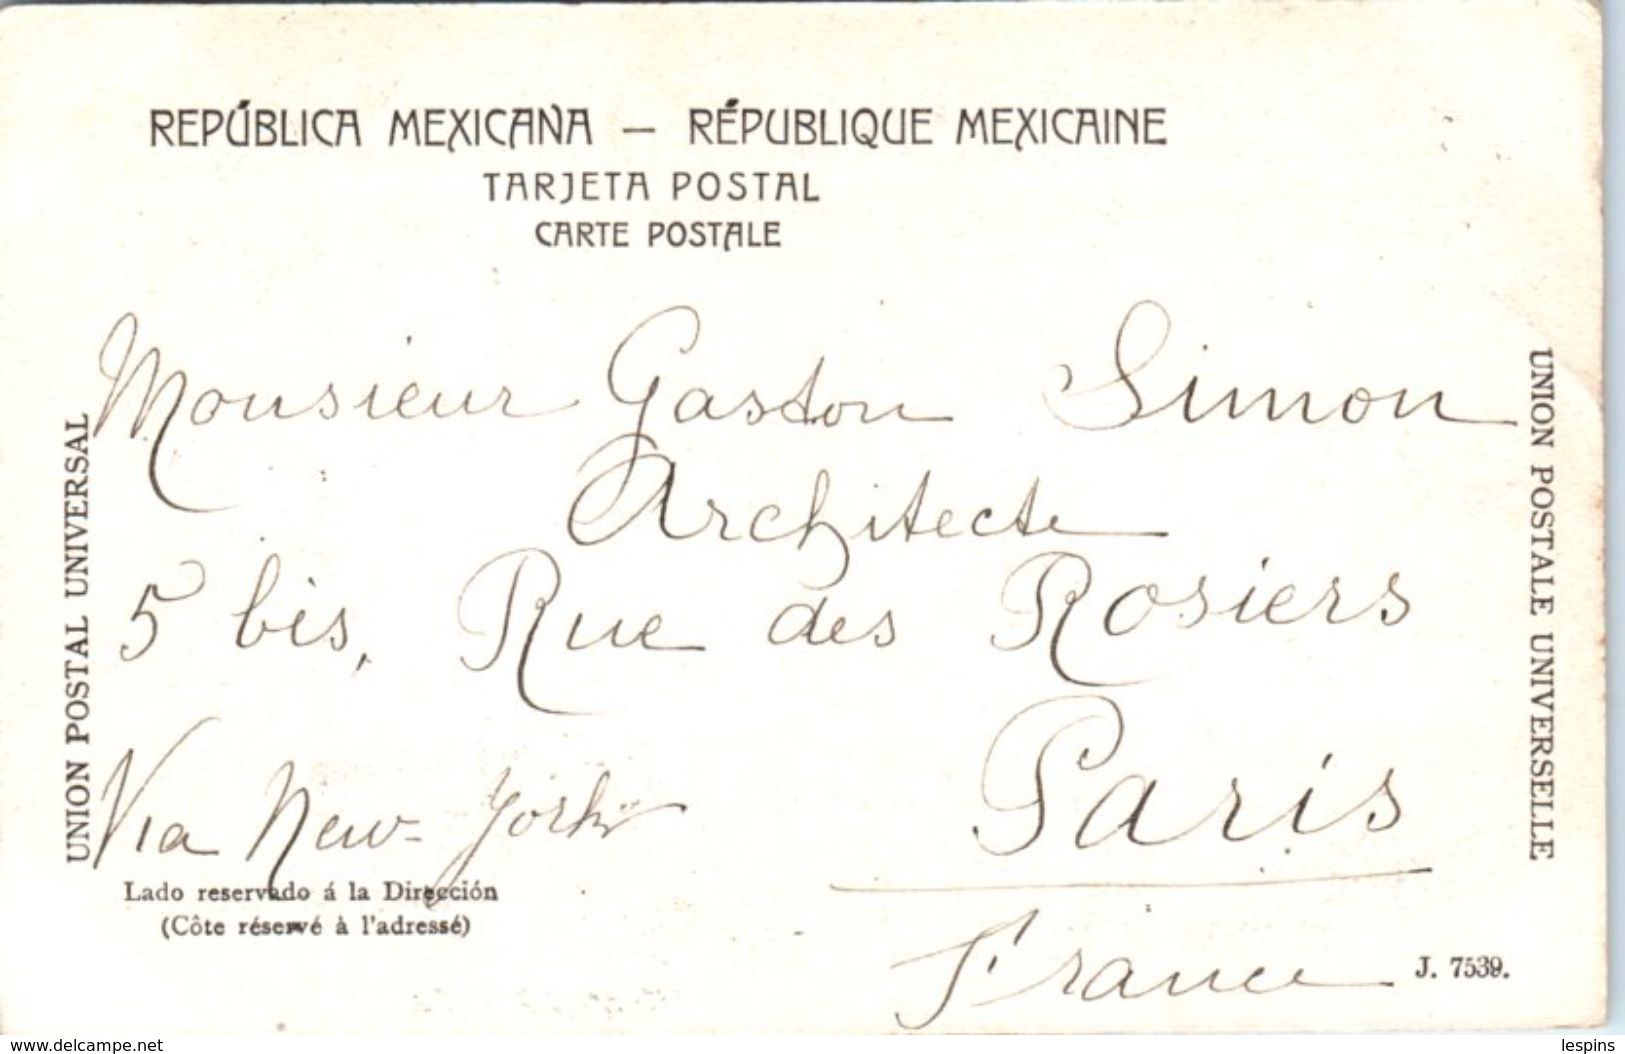 REPÚBLICA MEXICANA — RÉPUBLIQUE MEXICAINE
TARJETA POSTAL
CARTE POSTALE
UNION POSTAL UNIVERSAL
UNION POSTALE UNIVERSELLE
Monsieur Gaston Simon
Architecte
5 bis, Rue des Rosiers
Paris
Via New-York
France
Lado reservado á la Dirección
(Côte réservé à l'adressé)
J. 7539.
www.delcampe.net
lespins